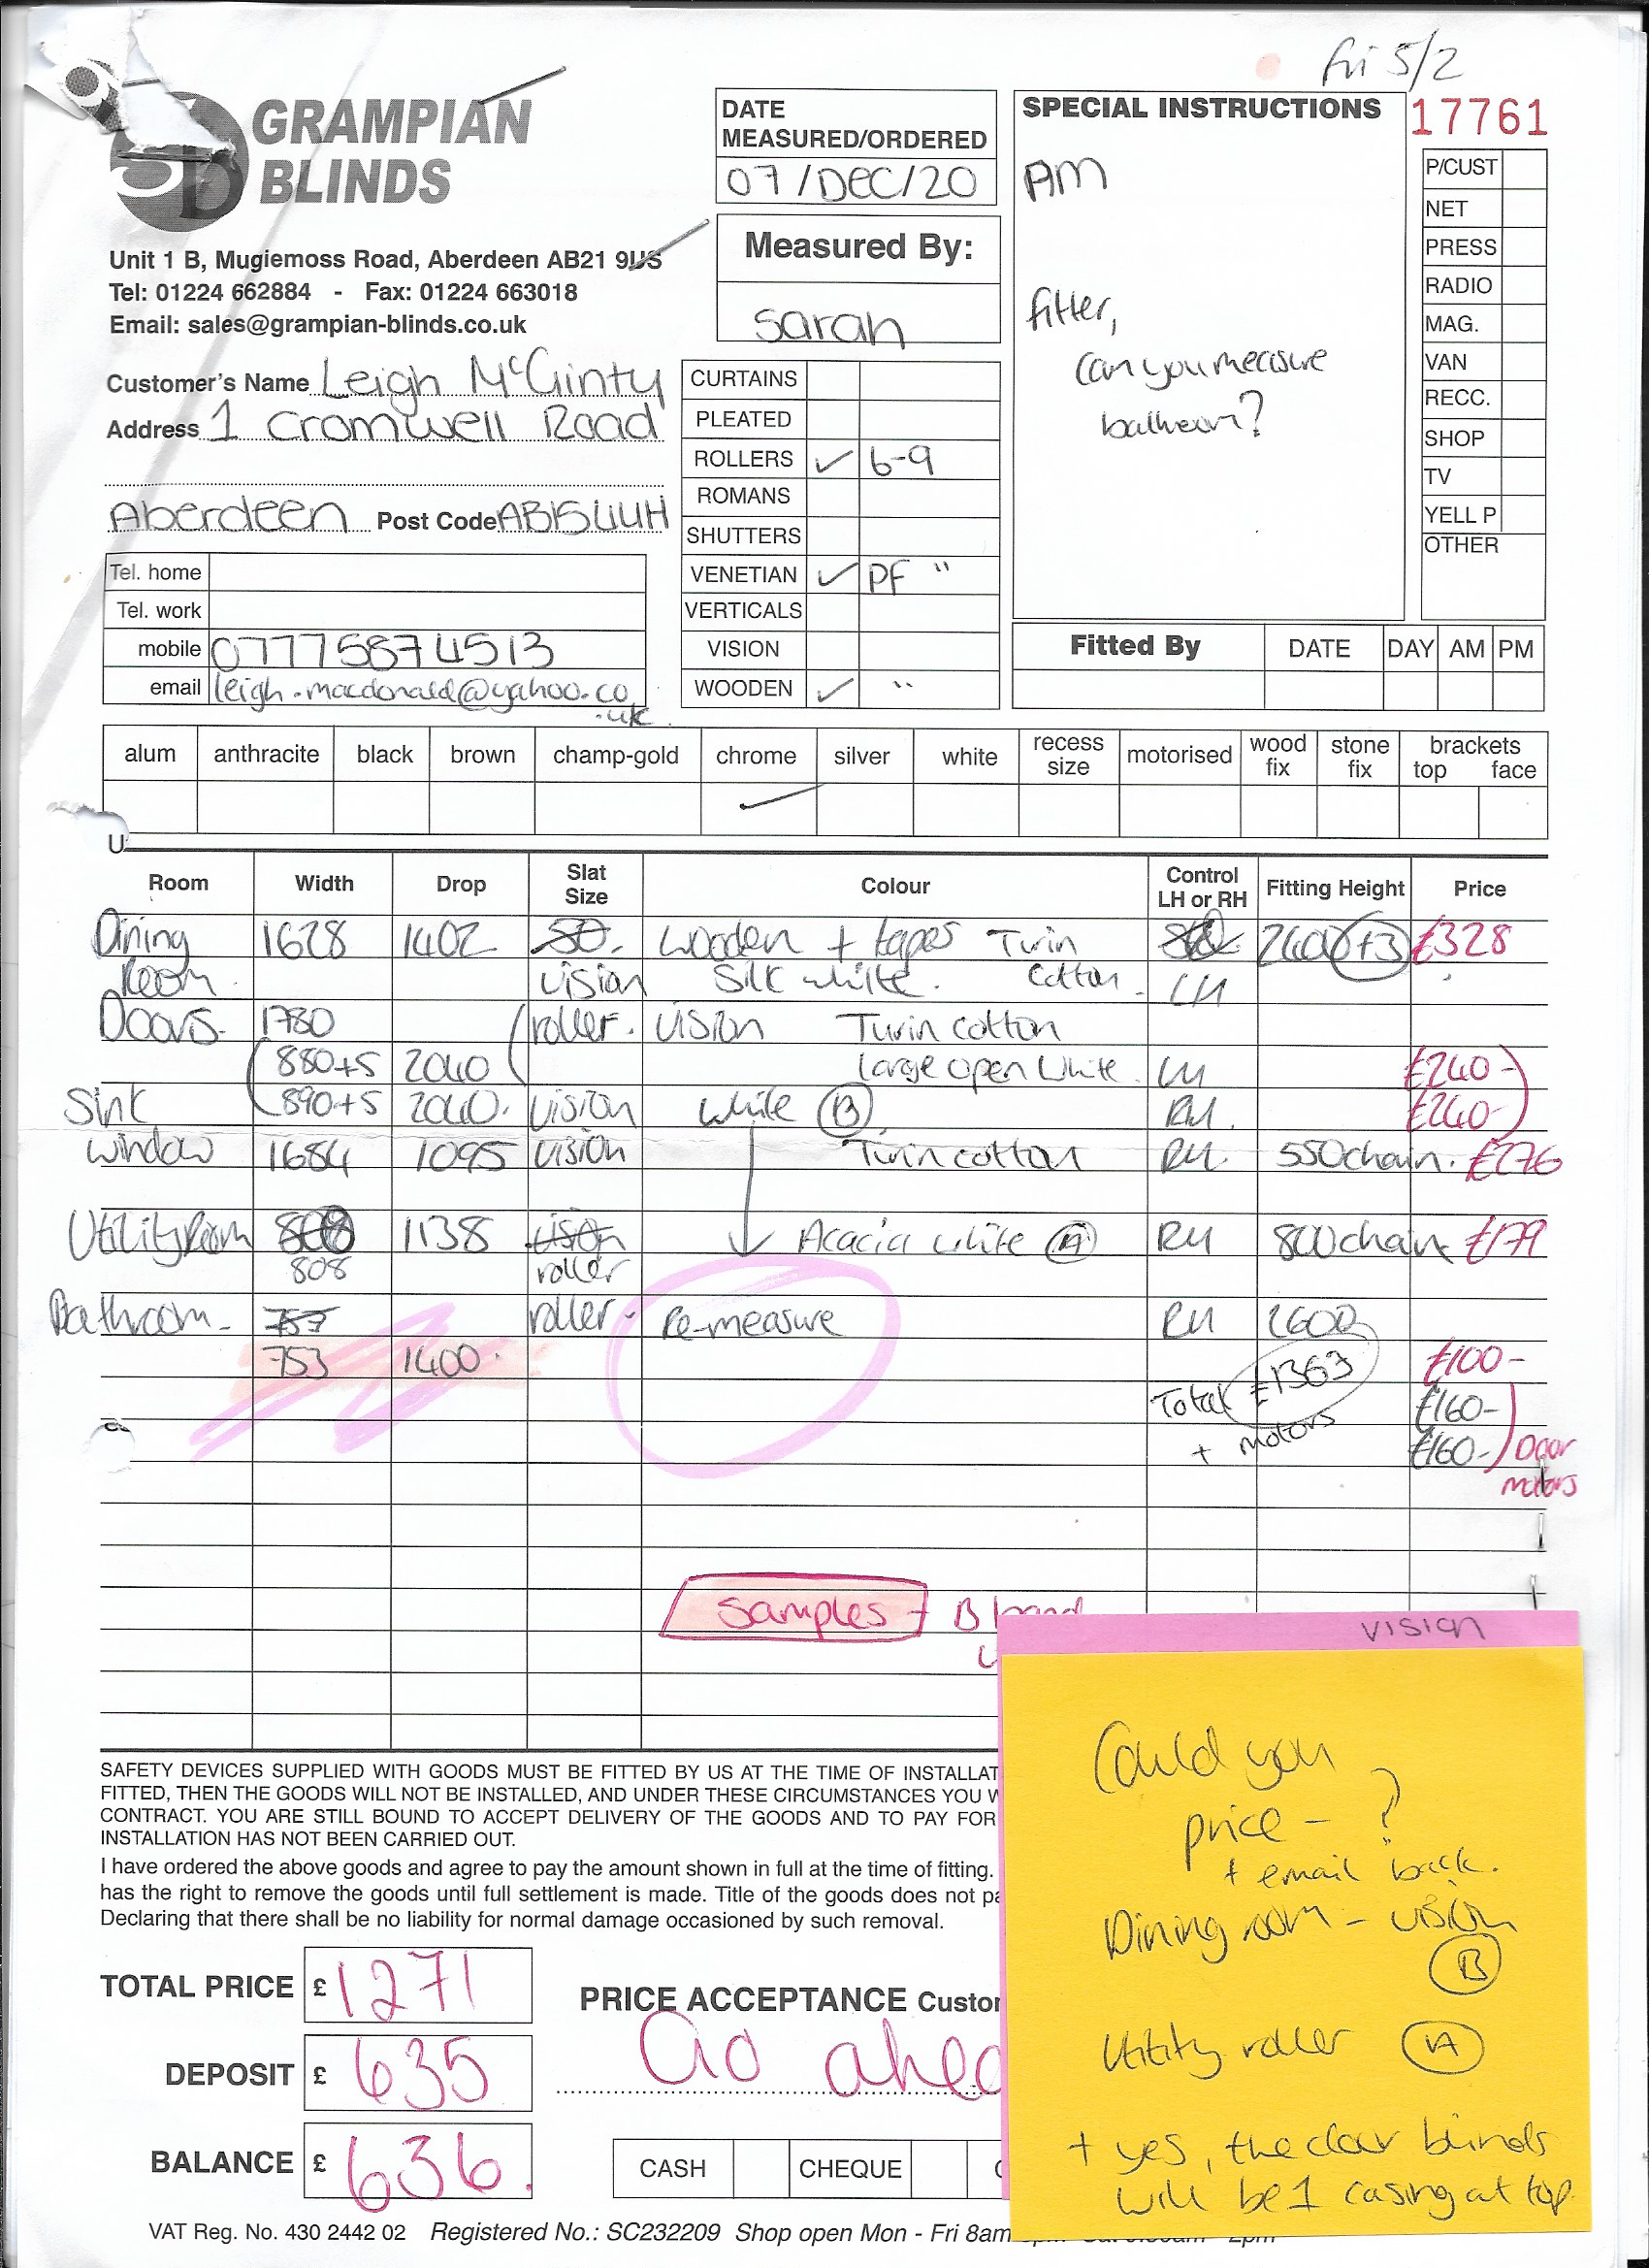 fri 5/2
GRAMPIAN
BLINDS
Unit 1 B, Mugiemoss Road, Aberdeen AB21 9US
Tel: 01224 662884 - Fax: 01224 663018
Email: sales@grampian-blinds.co.uk
DATE
MEASURED/ORDERED
07/DEC/20
Measured By:
Sarah
SPECIAL INSTRUCTIONS
AM
fitter,
can you measure
bathroom?
17761
P/CUST
NET
PRESS
RADIO
MAG.
VAN
RECC.
SHOP
TV
YELL P
OTHER
Customer's Name Leigh McGinty
Address 1 Cromwell Road
Aberdeen Post Code AB15 4UH
Tel. home
Tel. work
mobile 07775874513
email leigh.macdonald@yahoo.co
.uk
CURTAINS
PLEATED
ROLLERS ✓ 6-9
ROMANS
SHUTTERS
VENETIAN ✓ PF "
VERTICALS
VISION
WOODEN ✓ "
Fitted By DATE DAY AM PM
alum anthracite black brown champ-gold chrome silver white recess size motorised wood fix stone fix brackets top face
✓
Room Width Drop Slat Size Colour Control LH or RH Fitting Height Price
Dining 1628 1402 50. Wooden + tapes Twin 2400 +3 £328
Room. vision Silk white. Cotton. LH
Doors. 1780 roller. vision Twin cotton
880+5 2040 large open white. LH £240-
Sink 890+5 2040. vision white B RH. £240-
window 1684 1095 vision Twin cotton RH. 550chain. £276
Utility Room 808 1138 vision Acacia white A RH 800chain £179
808 roller
Bathroom- 757 roller- Re-measure RH 2600
753 1400. £100-
Total £1363 £160-
+ motors £160- Door
motors
Samples - B
vision
Could you
price - ?
+ email back.
Dining room - vision
B
Utility roller A
+ yes, the door blinds
will be 1 casing at top
SAFETY DEVICES SUPPLIED WITH GOODS MUST BE FITTED BY US AT THE TIME OF INSTALLAT
FITTED, THEN THE GOODS WILL NOT BE INSTALLED, AND UNDER THESE CIRCUMSTANCES YOU W
CONTRACT. YOU ARE STILL BOUND TO ACCEPT DELIVERY OF THE GOODS AND TO PAY FOR
INSTALLATION HAS NOT BEEN CARRIED OUT.
I have ordered the above goods and agree to pay the amount shown in full at the time of fitting.
has the right to remove the goods until full settlement is made. Title of the goods does not pa
Declaring that there shall be no liability for normal damage occasioned by such removal.
TOTAL PRICE £ 1271
DEPOSIT £ 635
BALANCE £ 636.
PRICE ACCEPTANCE Custo
Go ahea
CASH CHEQUE
VAT Reg. No. 430 2442 02 Registered No.: SC232209 Shop open Mon - Fri 8am